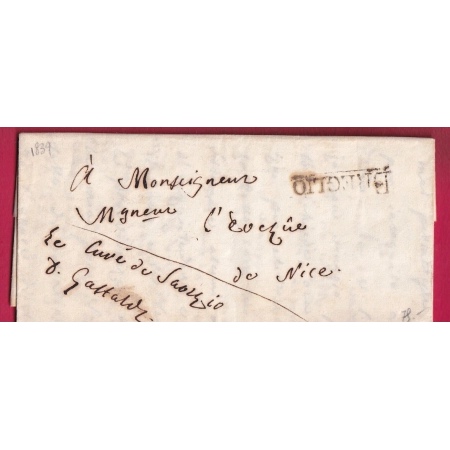 1839
à Monseigneur
Mgneur l'Evezûe
de Nice.
Le Curé de Saorgio
D. Gastaldi